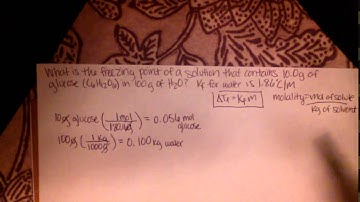 What is the freezing point of a solution that contains 10.0g of
glucose (C6H12O6) in 100g of H2O? Kf for water is 1.86°C/M
ΔTf = Kf m molality = mol of solute / kg of solvent
10g glucose (1mol / 180.16g) = 0.056 mol glucose
100g (1kg / 1000g) = 0.100 kg water